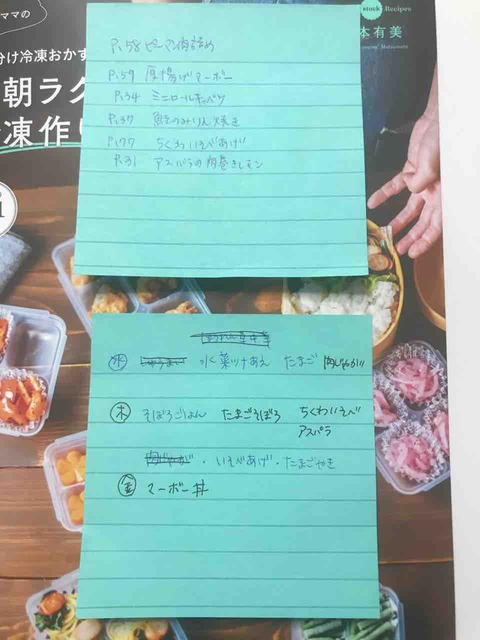 ママの
stock Recipes
本有美
分け冷凍おかず
朝ラク
凍作り
P.58 ピーマン肉詰め
P.59 厚揚げマーボー
P.34 ミニロールキャベツ
P.37 鮭のみりん焼き
P.77 ちくわいそべあげ
P.31 アスパラの肉巻きレモン
水 水菜ツナあえ たまご
木 そぼろごはん たまごそぼろ ちくわいそべ
アスパラ
肉じゃが ・いそべあげ・たまごやき
金 マーボー丼